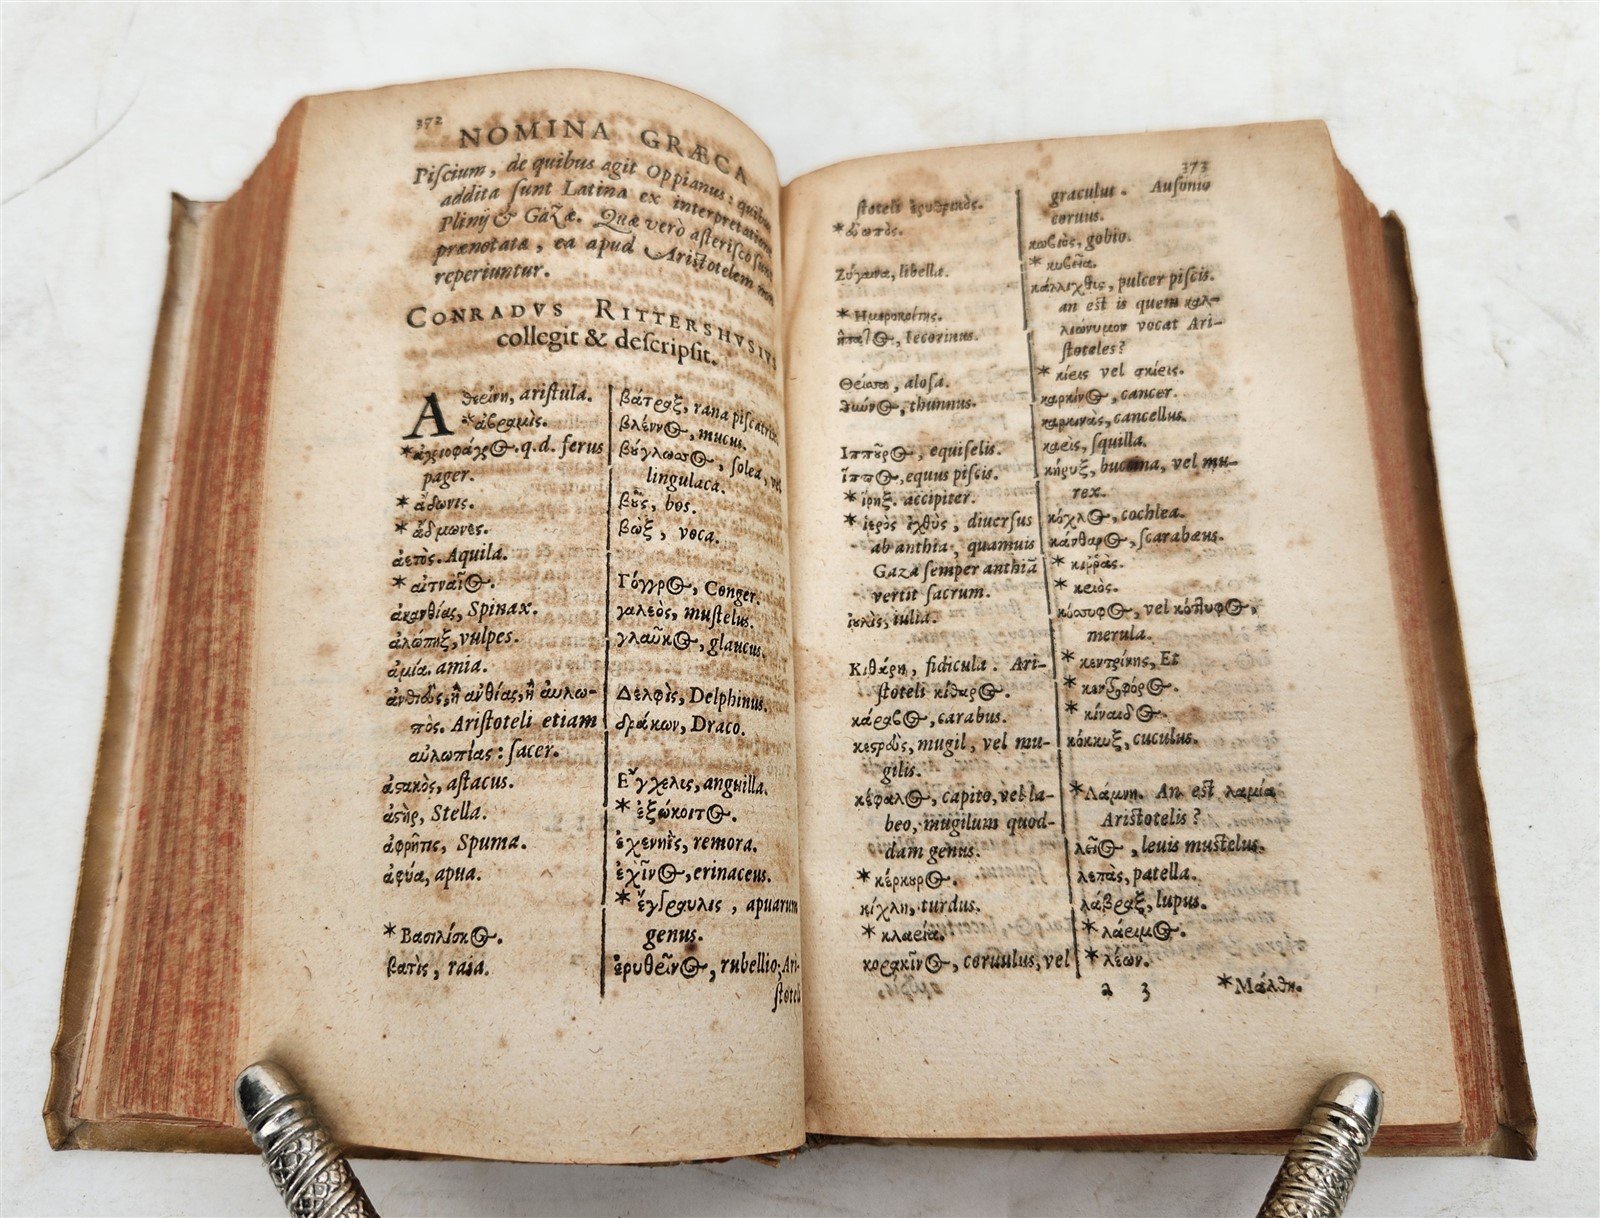 372
NOMINA GRÆCA
Piſcium, de quibus agit Oppianus: quibus
addita ſunt Latina ex interpretatione
Plinij & Gazæ. Quæ verò aſteriſco ſunt
prænotata, ea apud Ariſtotelem non
reperiuntur.
CONRADVS RITTERSHVSIVS
collegit & deſcripſit.
Aθερίνη, ariſtula.
*ἀβραμὶς.
*ἀγριοφάγος.q.d. ferus
pager.
* ἄδωνις.
* ἄδμωνες.
ἀετὸς. Aquila.
* αἰτναῖος.
ἀκανθίας, Spinax.
ἀλώπηξ, vulpes.
ἀμία. amia.
ἀνθιεὺς, ἢ ἀνθίας, ἢ ἀυλω-
πὸς. Ariſtoteli etiam
αὐλωπίας: ſacer.
ἀστακὸς, aſtacus.
ἀστὴρ, Stella.
ἀφρῆτις, Spuma.
ἀφύα, apua.
* Βασιλίσκος.
βατὶς, raia.
βάτραξ, rana piſcatrix.
βλέννος, mucus.
βύγλωσσος, ſolea, vel
lingulaca.
βοῦς, bos.
βὼξ, voca.
Γόγγρος, Conger.
γαλεὸς, muſtelus.
γλαῦκος, glaucus.
Δελφὶς, Delphinus.
δράκων, Draco.
Εʹγχελις, anguilla.
* ἐξώκοιτος.
ἐχενηῒς, remora.
ἐχῖνος, erinaceus.
* ἔγγραυλις, apuarum
genus.
ἐρυθῖνος, rubellio; Ari-
ſtoteli
373
ſtoteli ἐρυθρινὸς.
*εὐωπὸς.
Ζύγαινα, libella.
* Ημεροκοίτης.
ἥπατος, Iecorinus.
Θείσσα, aloſa.
θύννος, thunnus.
Ιππουρος, equiſelis.
ἵππος, equus piſcis.
* ἴρηξ. accipiter.
* ἱερὸς ἰχθὺς, diuerſus
ab anthia, quamuis
Gaza ſemper anthiā
vertit ſacrum.
ἰουλὶς, iulia.
Κιθάρη, fidicula. Ari-
ſtoteli κίθαρος.
κάραβος, carabus.
κεστρεὺς, mugil, vel mu-
gilis.
κέφαλος, capito, vel la-
beo, mugilum quod-
dam genus.
* κέρκουρος.
κίχλη, turdus.
* κλαεία.
κορακῖνος, coruulus, vel
graculus. Auſonio
coruus.
κωβιὸς, gobio.
* κυβεία.
κάλλιχθις, pulcer piſcis.
an eſt is quem καλ-
λιώνυμον vocat Ari-
ſtoteles?
* κίεις vel σκίεις.
καρκίνος, cancer.
καρκινὰς, cancellus.
καρὶς, ſquilla.
κήρυξ, buccina, vel mu-
rex.
κόχλος, cochlea.
κάνθαρος, ſcarabæus.
* κιῤῥὰς.
* κειὸς.
κόσσυφος, vel κόττυφος,
merula.
* κεντρίνης, Et
* κεντροφόρος.
* κίναιδος.
κόκκυξ, cuculus.
*Λάμνη. An eſt λαμία
Ariſtotelis?
λεῖος, leuis muſtelus.
λεπὰς, patella.
λάβραξ, lupus.
* λάριμος.
* λέων.
2 3
*Μάλθη.